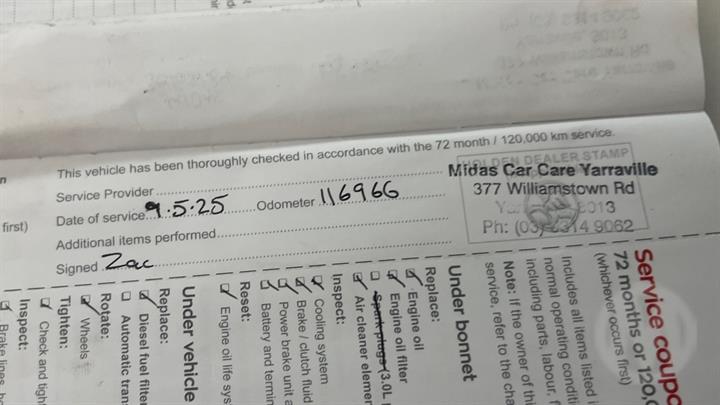 This vehicle has been thoroughly checked in accordance with the 72 month / 120,000 km service.
Service Provider
Date of service 9.5.25 Odometer 116966
Additional items performed
Signed Zac
HOLDEN DEALER STAMP
Midas Car Care Yarraville
377 Williamstown Rd
3013
Ph: (03) 9314 9062
first)
Service coupo
72 months or 120,0
(whichever occurs first)
Includes all items listed i
normal operating conditi
including parts, labour,
Note: If the owner of thi
service, refer to the cha
Under bonnet
Replace:
Engine oil
Engine oil filter
Spark plugs (3.0L
Air cleaner elemen
Inspect:
Cooling system
Brake / clutch fluid
Power brake unit a
Battery and termin
Reset:
Engine oil life sys
Under vehicle
Replace:
Diesel fuel filte
Automatic tran
Rotate:
Wheels
Tighten:
Check and tight
Inspect:
Brake lines, h